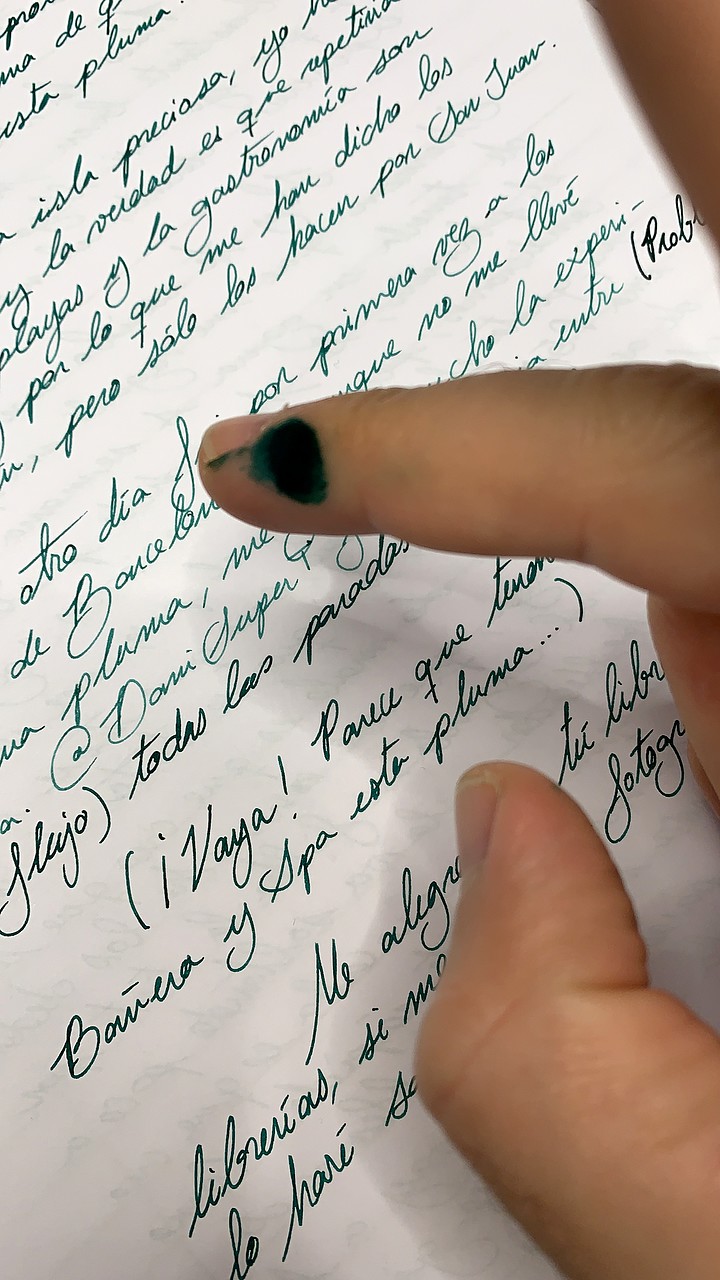 ma de
esta pluma.
isla preciosa, yo
y la verdad es que repetiría
playas y la gastronomía son
por lo que me han dicho los
, pero sólo los hacen por San Juan.
otro día por primera vez a los
de Barcelon unque no me llevé
una pluma, me ucho la experi-
@DaniSuper entre (Prob
flujo) todas las paradas
(¡Vaya! Parece que tenem
Bañera y Spa esta pluma...)
Me alegr tú libr
librerías, si me fotogr
lo haré